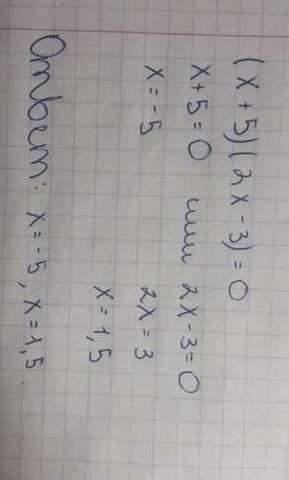 (x+5)(2x-3)=0
x+5=0 или 2x-3=0
x=-5 2x=3
x=1,5
Ответ: x=-5, x=1,5